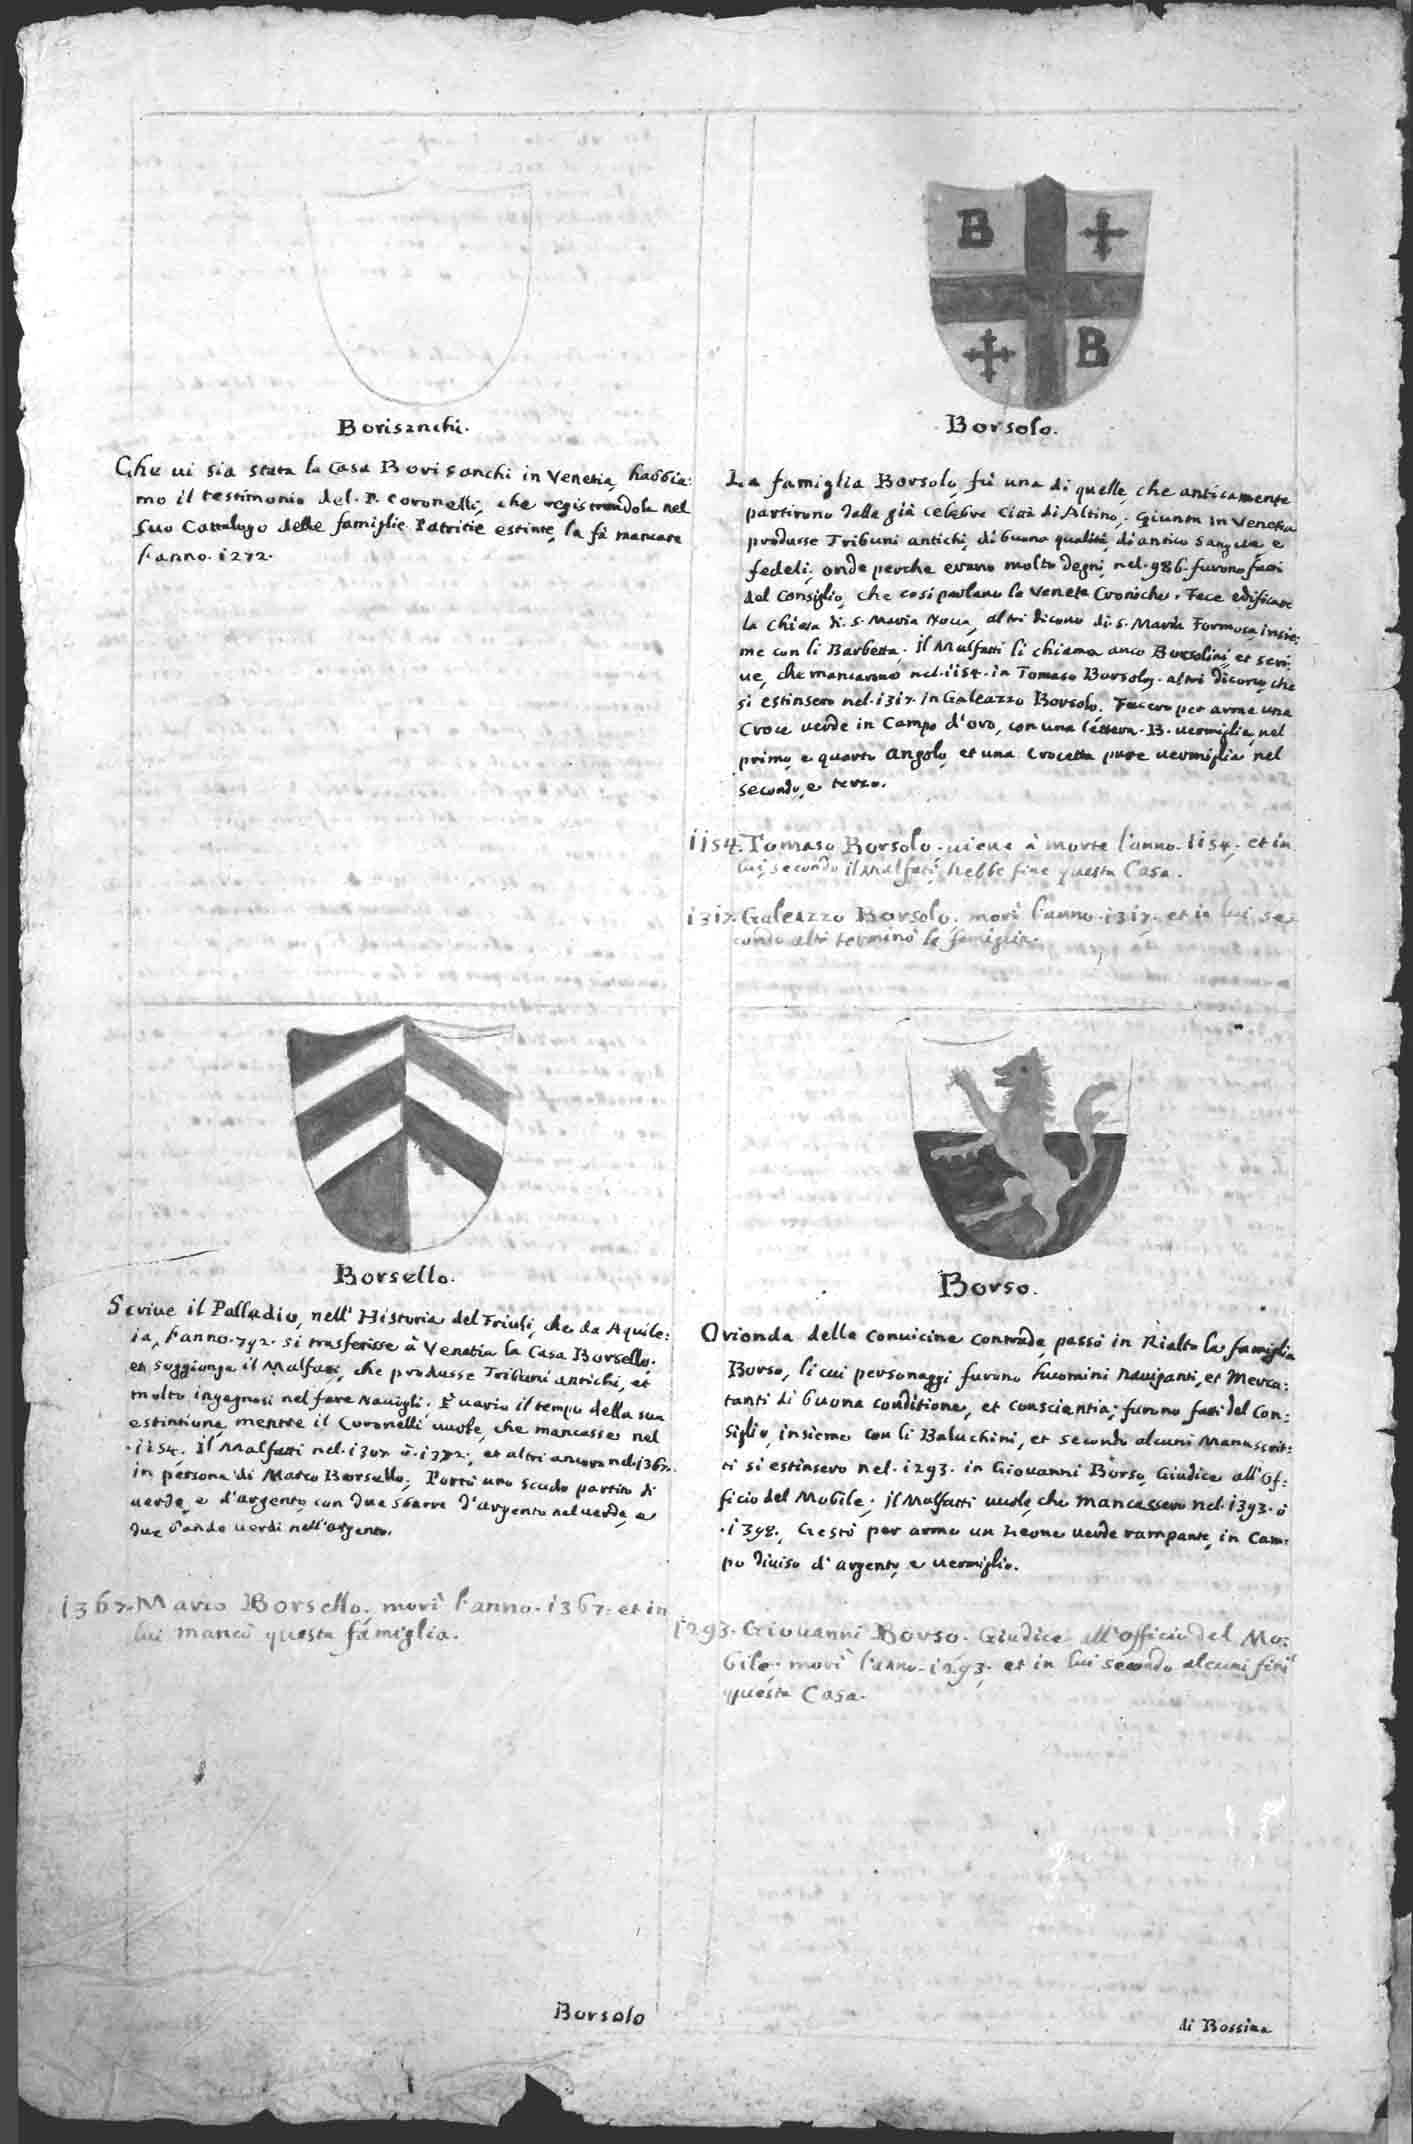 Borisanchi.
Che ui sia stata la Casa Borisanchi in Venetia, habbia:
mo il testimonio del. P. Coronelli, che registrandola nel
suo Cattalogo delle famiglie Patritie estinte, la fà mancare
l'anno. 1272.
Borsello.
Scriue il Palladio, nell' Historia del Friuli, che da Aquile:
ia, l'anno. 792. si trasferisse à Venetia la Casa Borsello;
et soggionge il Malfatti, che produsse Tribuni antichi, et
molto ingegnosi nel fare Nauigli. È uario il tempo della sua
estintione, mentre il Coronelli uuole, che mancasse nel
.1154. Il Malfatti nel. 1307. ò. 1372; et altri ancora nel. 1367.
in persona di Marco Borsello; Portò uno scudo partito di
uerde, e d'argento, con due sbarre d'argento nel uerde, e
due bande uerdi nell'argento.
1367. Marco Borsello, morì l'anno. 1367. et in
lui mancò questa famiglia.
Borsolo
B
B
Borsolo.
La famiglia Borsolo, fù una di quelle, che anticamente
partirono dalla già celebre Città di Altino; Giunta in Venetia
produsse Tribuni antichi, di buona qualità, di antico sangue, e
fedeli; onde perche erano molto degni, nel. 986. furono fatti
del Consiglio, che così parlano le Venete Croniche. Fece edificare
la Chiesa di. S. Maria Noua, altri dicono di. S. Maria Formosa, insie:
me con li Barbetta. Il Malfatti li chiama anco Borsolini, et scri:
ue, che mancarono nel. 1154. in Tomaso Borsolo; altri dicono, che
si estinsero nel. 1317. in Galeazzo Borsolo. Fecero per arma una
Croce uerde in Campo d'oro, con una lettera. B. uermiglia, nel
primo, e quarto angolo, et una Crocetta pure uermiglia nel
secondo, e terzo.
1154. Tomaso Borsolo. uiene à morte l'anno. 1154; et in
lui, secondo il Malfatti, hebbe fine questa Casa.
1317. Galeazzo Borsolo. morì l'anno. 1317. et in lui se:
condo altri terminò la famiglia.
Borso.
Orionda delle conuicine contrade, passò in Rialto la famiglia
Borso, li cui personaggi furono huomini nauiganti, et Merca:
tanti di buona conditione, et conscientia; furono fatti del Con:
siglio, insieme con li Baluchini, et secondo alcuni Manuscrit:
ti si estinsero nel. 1293. in Giouanni Borso, Giudice all'Of:
ficio del Mobile; il Malfatti uuole, che mancassero nel. 1393. ò
.1398. Gestò per arma un Leone uerde rampante, in Cam:
po diuiso d'argento, e uermiglio.
1293. Giouanni Borso. Giudice all'officio del Mo:
bile. morì l'anno. 1293; et in lui secondo alcuni finì
questa Casa.
di Bossina